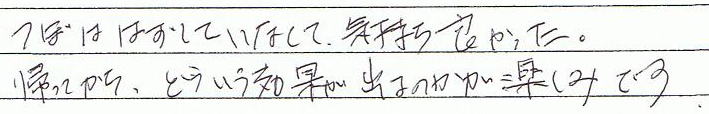 つぼははずしていなくて、気持ち良かった。
帰ってから、どういう効果が出るのかが楽しみです